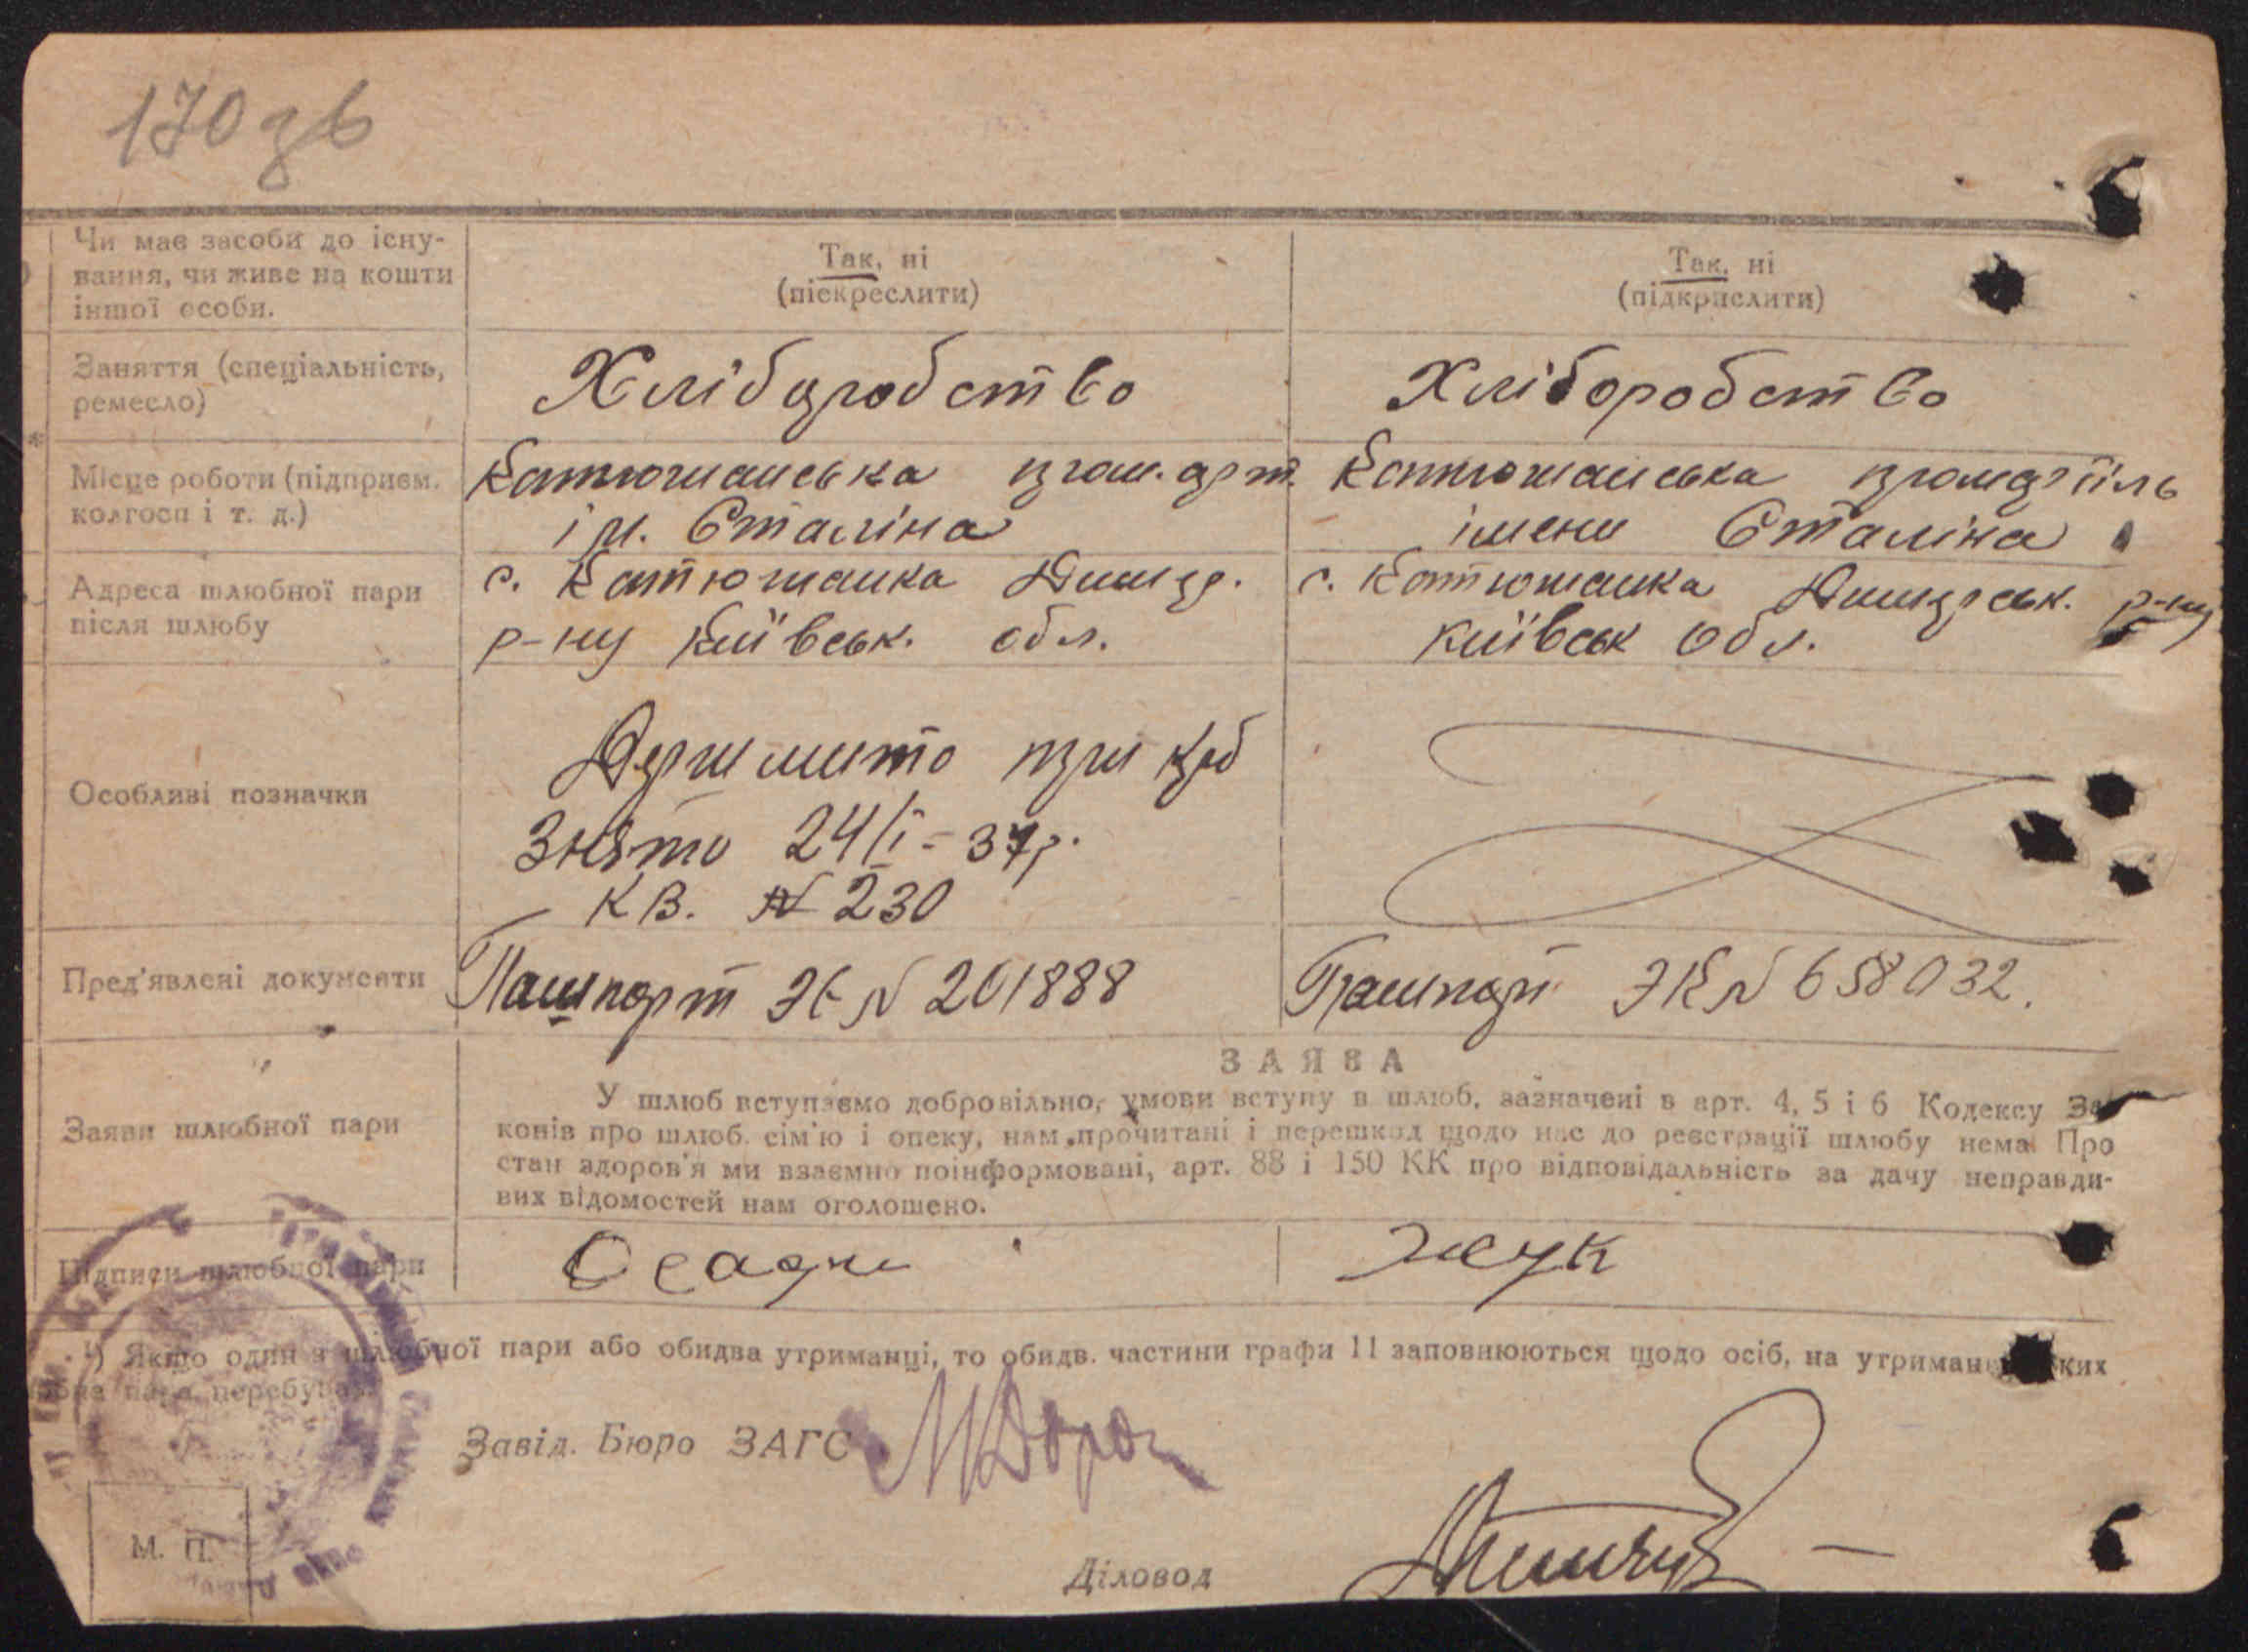 170 зв
Чи має засоби до існу-
вання, чи живе на кошти
іншої особи.
Так, ні
(піскреслити)
Так, ні
(підкрислити)
Заняття (спеціальність,
ремесло)
Хліборобство
Хліборобство
Місце роботи (підприєм.
колгосп і т. д.)
Катюшанська
ім. Сталіна
Катюшанська
імени Сталіна
Адреса шлюбної пари
після шлюбу
с. Катюжанка Димер.
р-ну Київськ. обл.
с. Катюжанка Димерськ. р-ну
Київськ обл.
Особливі позначки
Держ мито при крб
Знято 24/I-37р.
КВ. № 230
Пред'явлені документи
Пашпорт ЭЄ № 201888
Пашпорт ЭК № 658032.
Заяви шлюбної пари
ЗАЯВА
У шлюб вступаємо добровільно, умови вступу в шлюб, зазначені в арт. 4, 5 і 6 Кодексу За
конів про шлюб. сім'ю і опеку, нам прочитані і перешкод щодо нас до реєстрації шлюбу нема Про
стан здоров'я ми взаємно поінформовані, арт. 88 і 150 КК про відповідальність за дачу неправди-
вих відомостей нам оголошено.
Підписи шлюбної пари
Осадчи
Жук
¹) Якщо один з шлюбної пари або обидва утриманці, то обидв. частини графи 11 заповнюються щодо осіб, на утриман ких
пара перебуває
Завід. Бюро ЗАГС
М. П.
Діловод